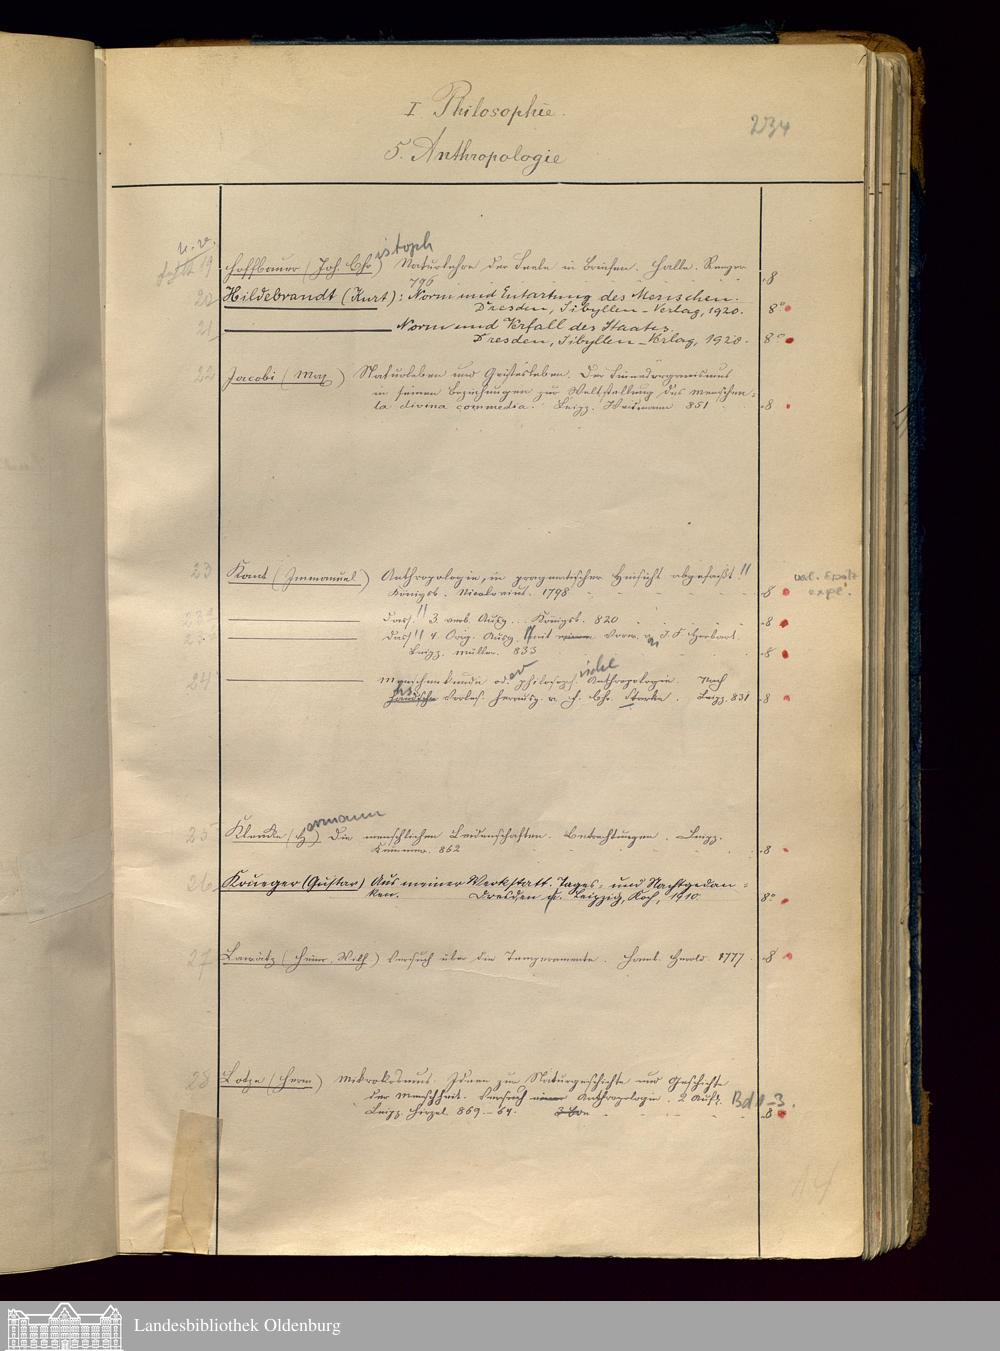 I Philosophie.
234
5. Anthropologie
19 Hoffbauer (Joh. Christoph) Naturlehre der Seele in Briefen. Halle. Renger
796 8
20 Hildebrandt (Kurt): Norm und Entartung des Menschen.
Dresden, Sibyllen-Verlag, 1920. 8°
21 Norm und Verfall des Staates.
Dresden, Sibyllen-Verlag, 1920. 8°
22 Jacobi (Max) Naturleben und Geistesleben. Der Sinnesorganismus
in seinen Beziehungen zur Weltstellung des Menschen:
la divina commedia. Leipz. Weidmann 851 8
23 Kant (Immanuel) Anthropologie, in pragmatischer Hinsicht abgefaßt!!
Königsb. Nicolovius. 1798 8
Dass!! 3. verb. Ausg. Königsb. 820 8
Dass!! 4. Orig. Ausg. mit Vorw. v. J. F. Herbart.
Leipz. Müller. 833 8
24 Menschenkunde oder philosophische Anthropologie. Nach
hds. Vorles. herausg. v. F. Ch. Starke. Leipz. 831 8
25 Klencke (Hermann) Die menschlichen Leidenschaften. Betrachtungen. Leipz.
Kummer. 862 8
26 Krueger (Gustav) Aus meiner Werkstatt. Tages- und Nachtgedan-
ken. Dresden u. Leipzig, Koch, 1910. 8°
27 Lawätz (Heinr. Wilh) Versuch über die Temperamente. Hamb. Herold. 1777 8
28 Lotze (Herm) Mikrokosmus. Ideen zur Naturgeschichte und Geschichte
der Menschheit. Versuch einer Anthropologie. 2 Aufl. Bd 1-3.
Leipz. Hirzel. 869.-64. 8
Landesbibliothek Oldenburg